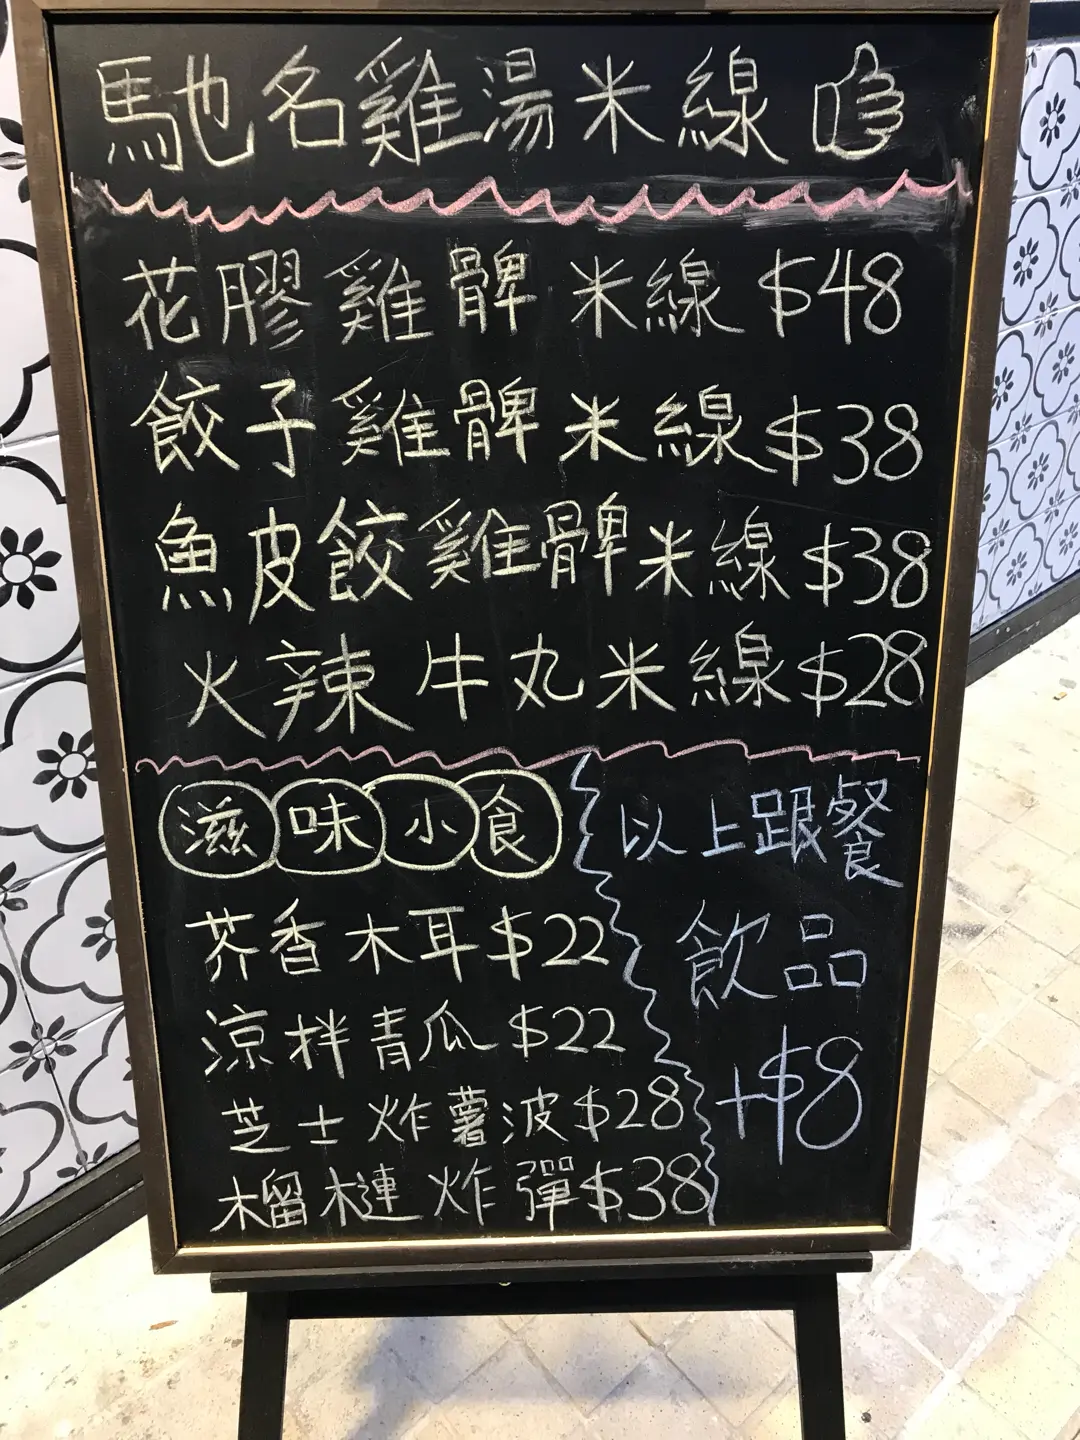 馳名雞湯米線
花膠雞髀米線 $48
餃子雞髀米線 $38
魚皮餃雞髀米線 $38
火辣牛丸米線 $28
滋味小食
芥香木耳 $22
涼拌青瓜 $22
芝士炸薯波 $28
榴槤炸彈 $38
以上跟餐
飲品
+$8